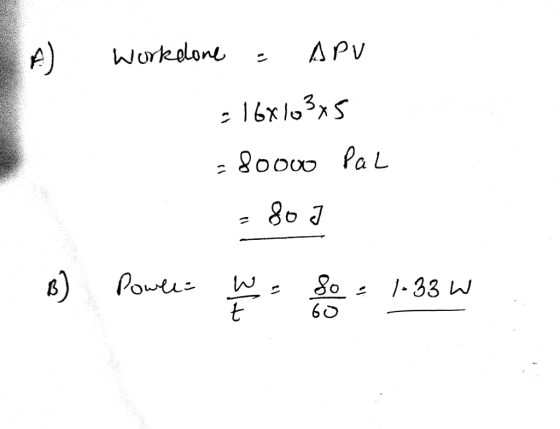 A) Workdone = ΔPV
= 16x10³x5
= 80000 PaL
= 80 J
B) Power = W/t = 80/60 = 1.33 W